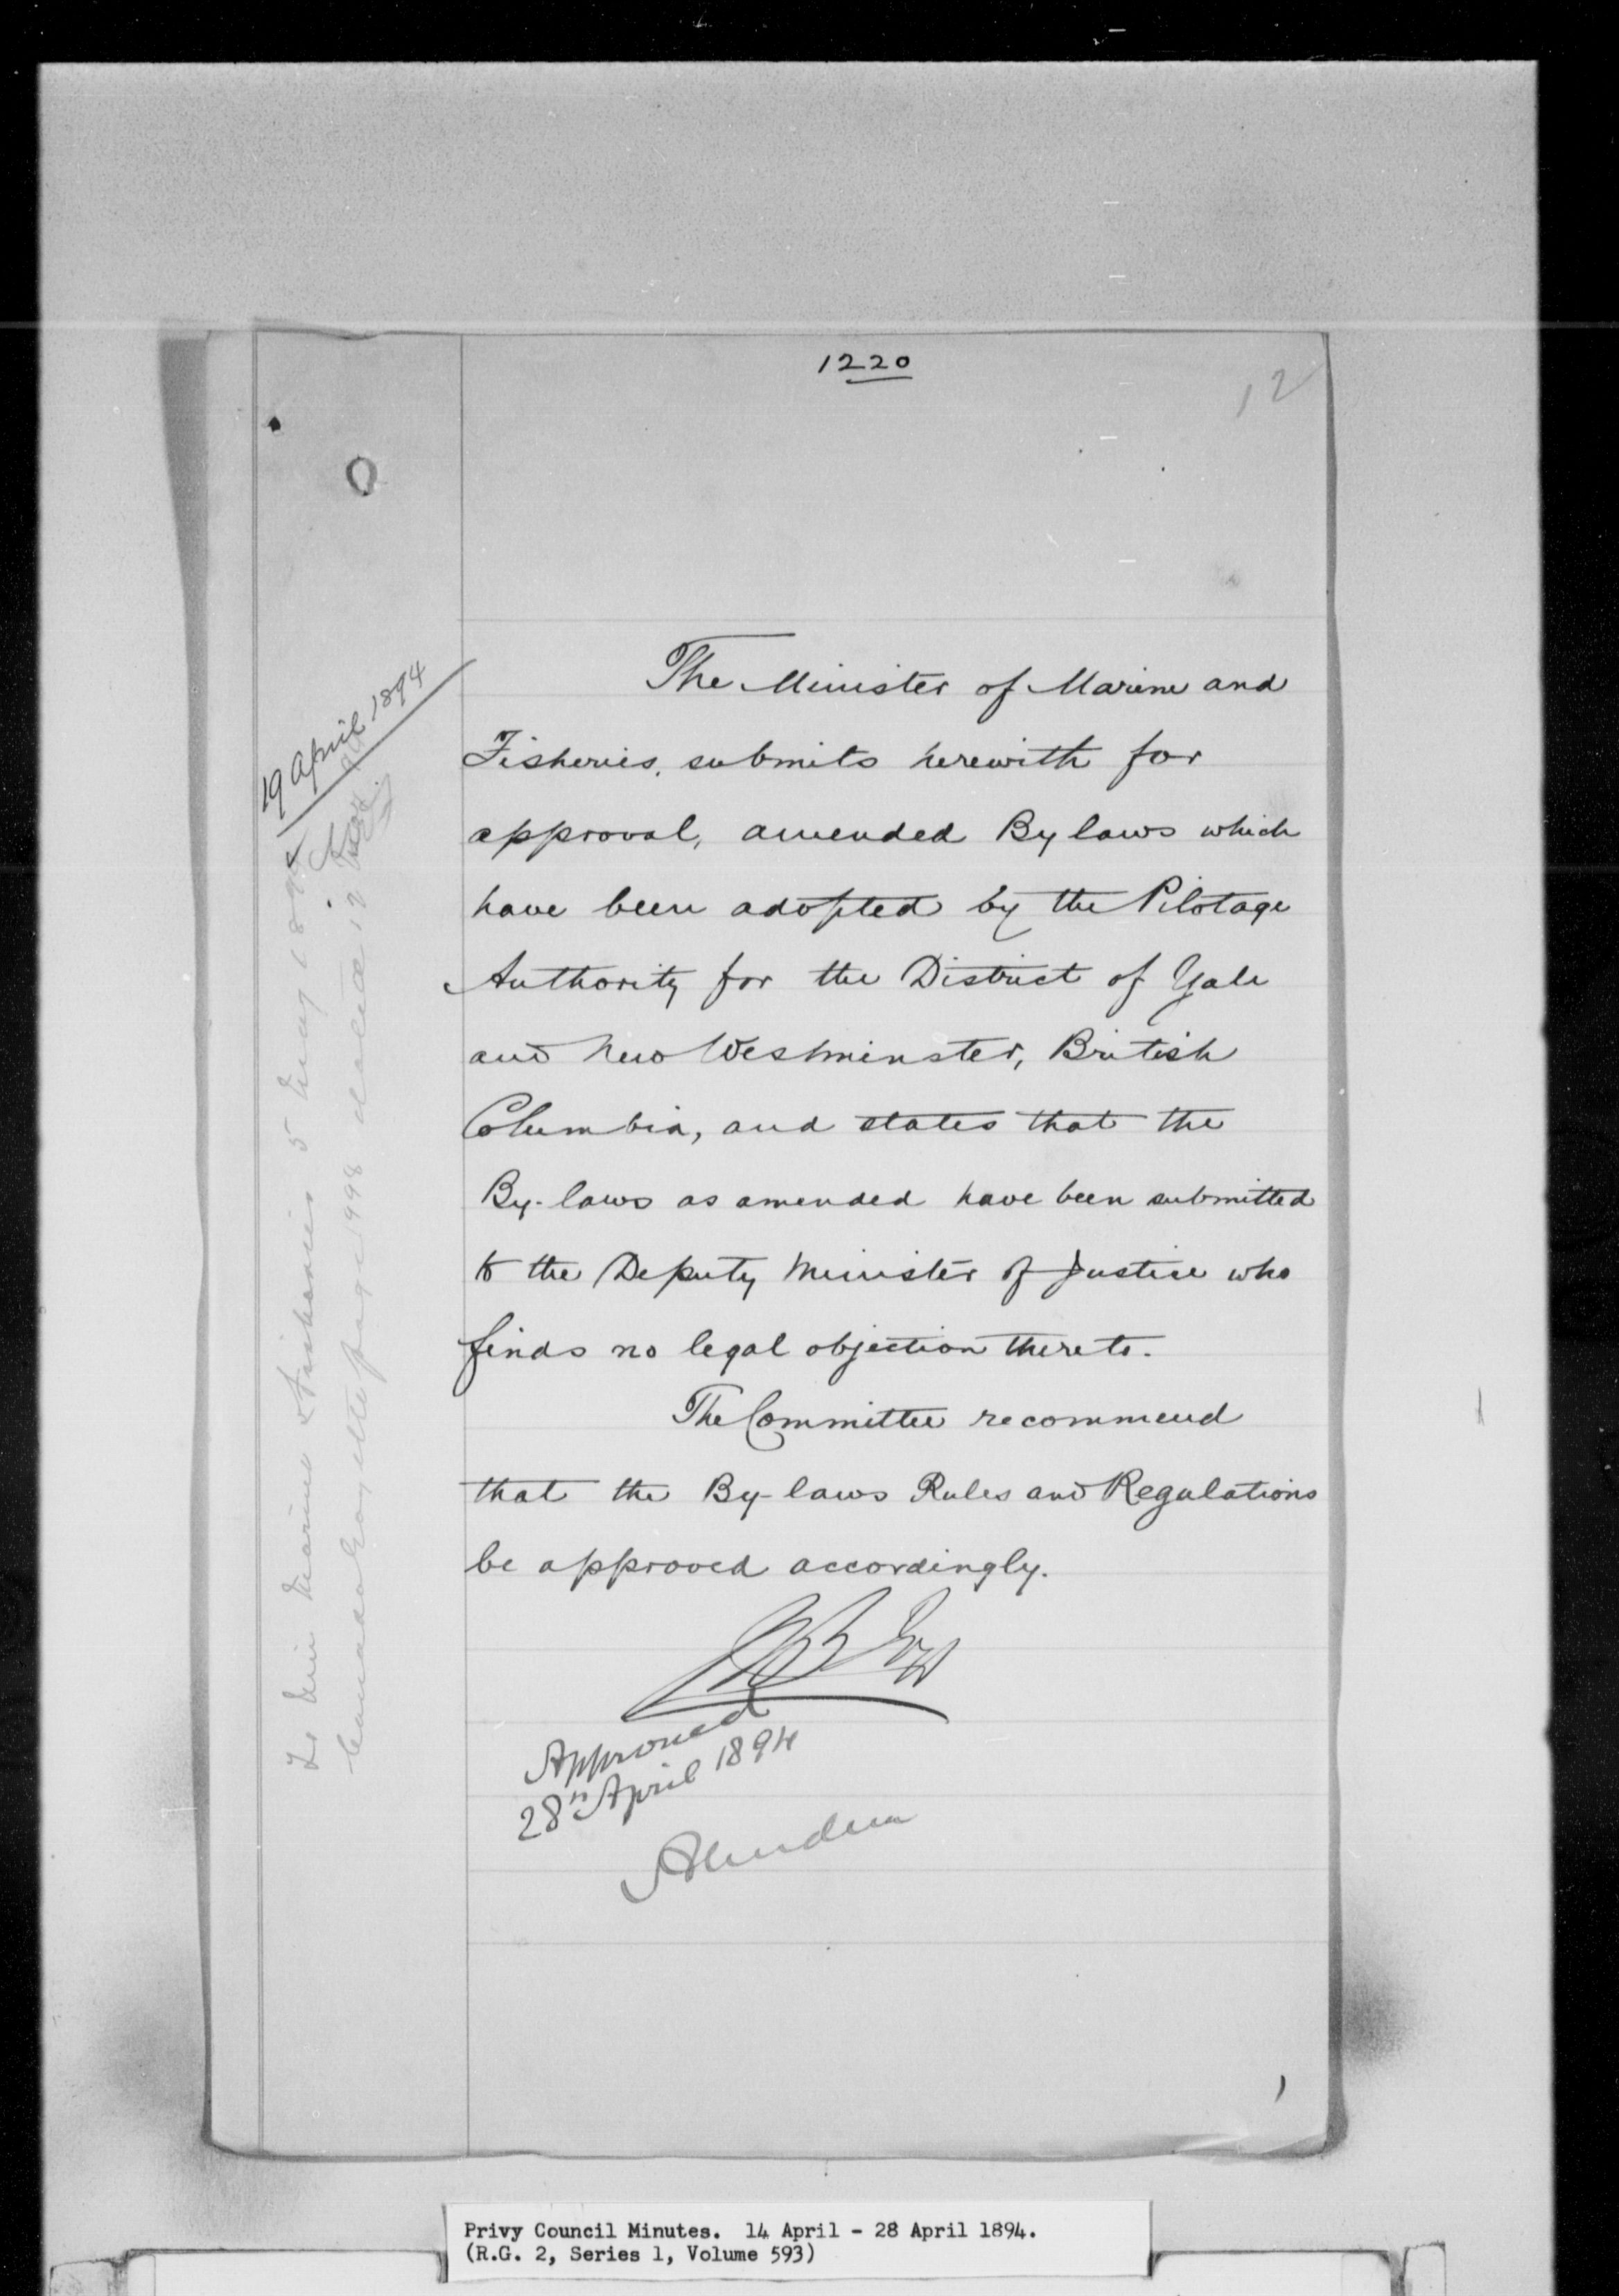 1220
12
19 April 1894
The Minister of Marine and
Fisheries, submits herewith for
approval, amended By laws which
have been adopted by the Pilotage
Authority for the District of Yale
and New Westminster, British
Columbia, and states that the
By-laws as amended have been submitted
to the Deputy Minister of Justice who
finds no legal objection thereto.
The Committee recommend
that the By-laws Rules and Regulations
be approved accordingly.
Approved
28th April 1894
Aberdeen
To Min Marine & Fisheries 5 May 1894
Canada Gazette page 1998 dated 12 May
Privy Council Minutes. 14 April - 28 April 1894.
(R.G. 2, Series 1, Volume 593)